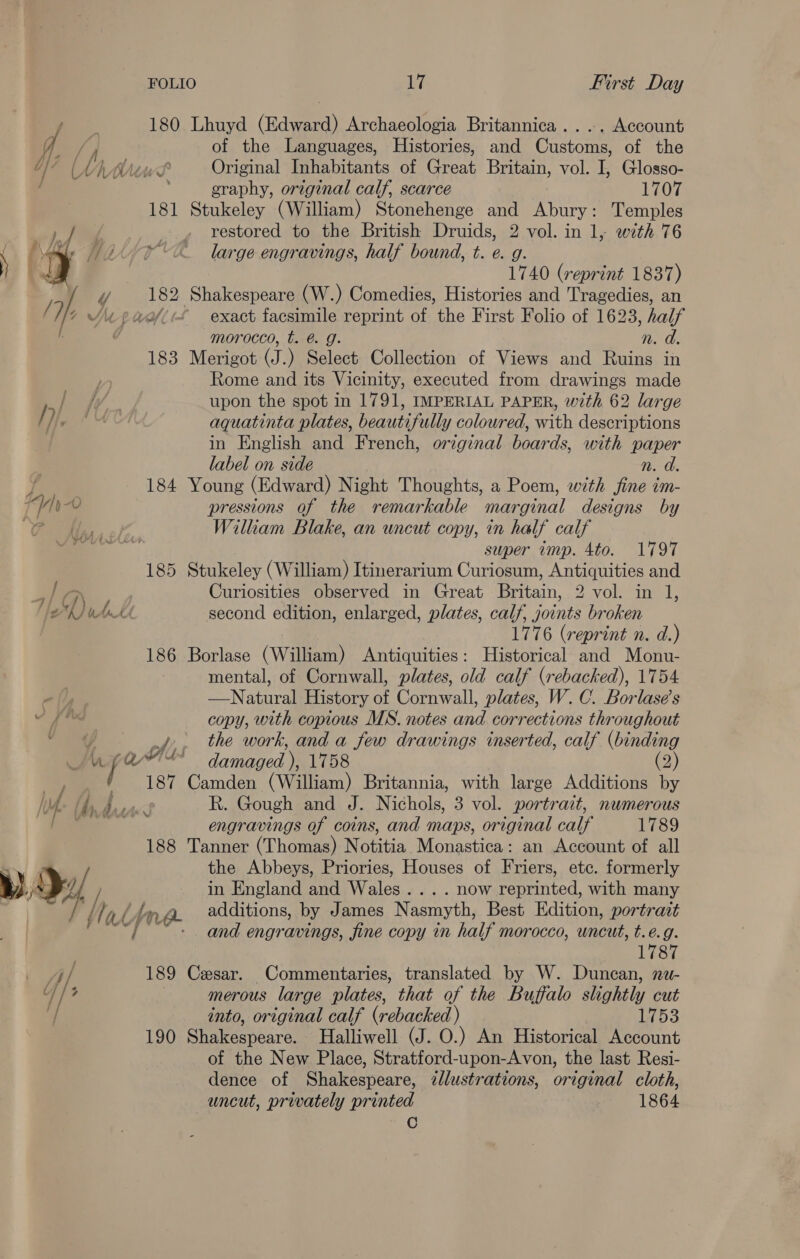 FOLIO 17 First Day
180 Lhuyd (Edward) Archaeologia Britannica . . . . Account
of the Languages, Histories, and Customs, of the
Original Inhabitants of Great Britain, vol. I, Glosso-
graphy, original calf, scarce 1707
181 Stukeley (William) Stonehenge and Abury: Temples
restored to the British Druids, 2 vol. in 1, with 76
large engravings, half bound, t. e. g.
1740 (reprint 1837)
182 Shakespeare (W.) Comedies, Histories and Tragedies, an
exact facsimile reprint of the First Folio of 1623, half
morocco, t. e. g. n. d.
183 Merigot (J.) Select Collection of Views and Ruins in
Rome and its Vicinity, executed from drawings made
upon the spot in 1791, IMPERIAL PAPER, with 62 large
aquatinta plates, beautifully coloured, with descriptions
in English and French, original boards, with paper
label on side n. d.
184 Young (Edward) Night Thoughts, a Poem, with fine im-
pressions of the remarkable marginal designs by
William Blake, an uncut copy, in half calf
super imp. 4to. 1797
185 Stukeley (William) Itinerarium Curiosum, Antiquities and
Curiosities observed in Great Britain, 2 vol. in 1,
second edition, enlarged, plates, calf, joints broken
1776 (reprint n. d.)
186 Borlase (William) Antiquities: Historical and Monu-
mental, of Cornwall, plates, old calf (rebacked), 1754
—Natural History of Cornwall, plates, W. C. Borlase's
copy, with copious MS. notes and corrections throughout
the work, and a few drawings inserted, calf (binding
damaged), 1758 (2)
187 Camden (William) Britannia, with large Additions by
R. Gough and J. Nichols, 3 vol. portrait, numerous
engravings of coins, and maps, original calf 1789
188 Tanner (Thomas) Notitia Monastica: an Account of all
the Abbeys, Priories, Houses of Friers, etc. formerly
in England and Wales . . . . now reprinted, with many
additions, by James Nasmyth, Best Edition, portrait
and engravings, fine copy in half morocco, uncut, t.e.g.
1787
189 Cæsar. Commentaries, translated by W. Duncan, nu-
merous large plates, that of the Buffalo slightly cut
into, original calf (rebacked) 1753
190 Shakespeare. Halliwell (J. O.) An Historical Account
of the New Place, Stratford-upon-Avon, the last Resi-
dence of Shakespeare, illustrations, original cloth,
uncut, privately printed 1864
C